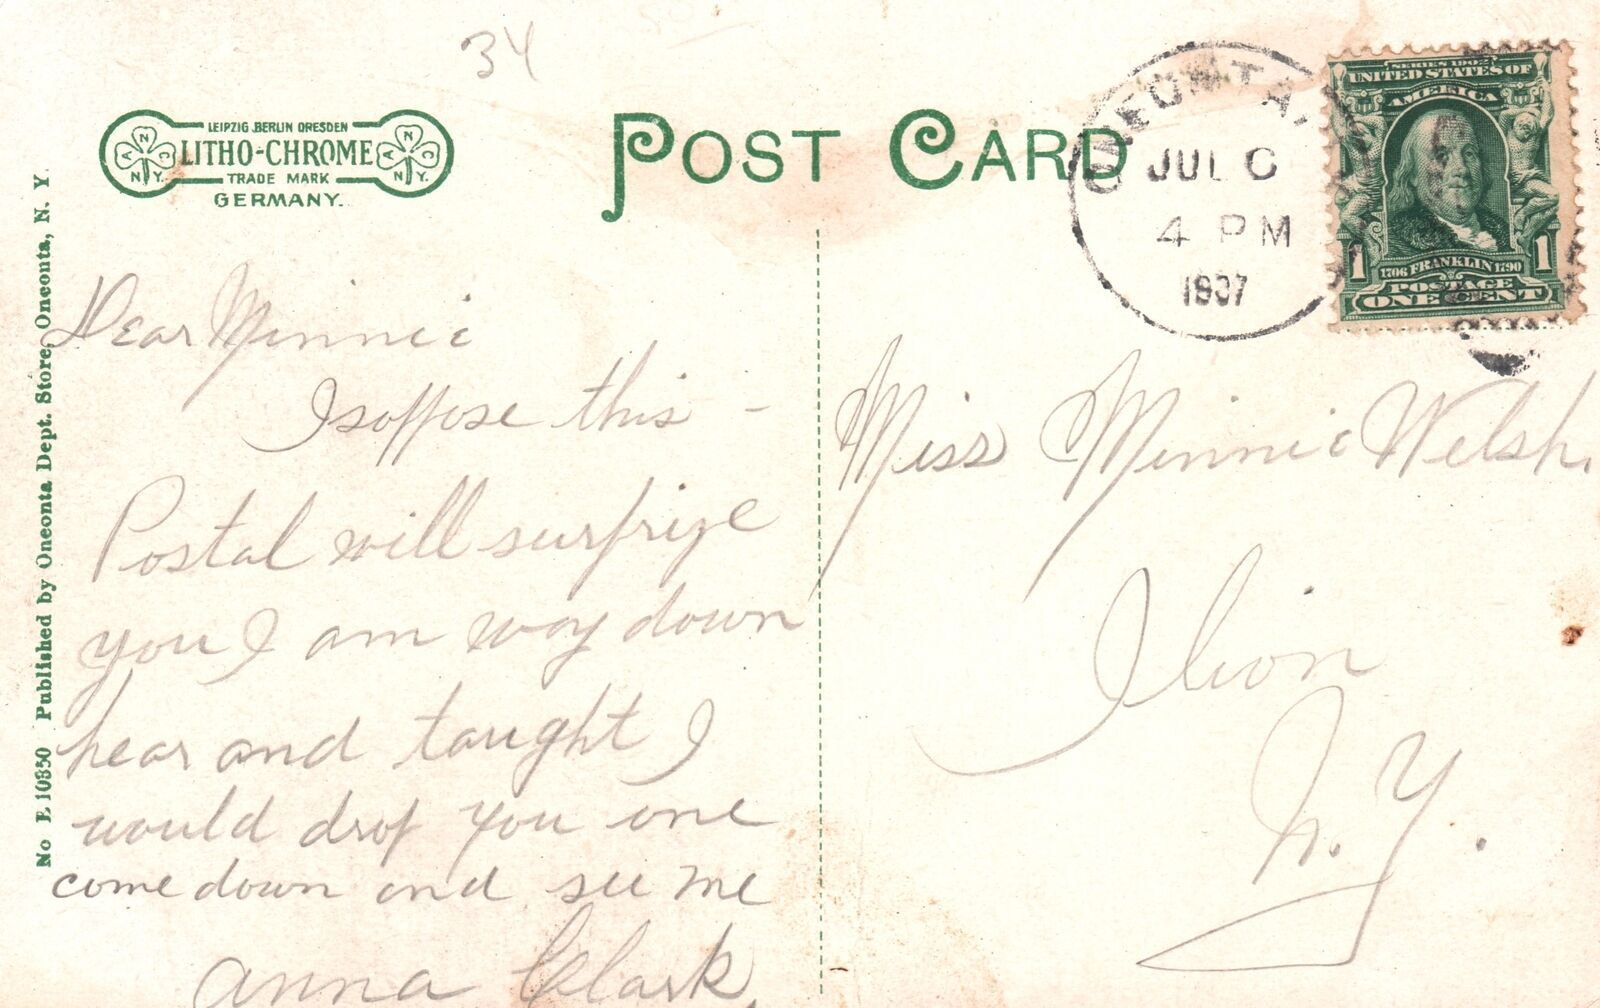 34
LEIPZIG BERLIN DRESDEN
LITHO-CHROME
TRADE MARK
GERMANY.
A N N.Y.
A N N C N.Y.
POST CARD
ONEONTA,
JUL
4 PM
1907
SERIES 1902
UNITED STATES OF
AMERICA
1 1
1706 FRANKLIN 1790
POSTAGE
ONE CENT
No E 10850 Published by Oneonta Dept. Store, Oneonta, N. Y.
Dear Minnie
I soppose this -
Postal will surprize
you I am way down
hear and taught I
would drop you one
come down and see me
Anna Clark.
Miss Minnie Welsh,
Ilion
N.Y.